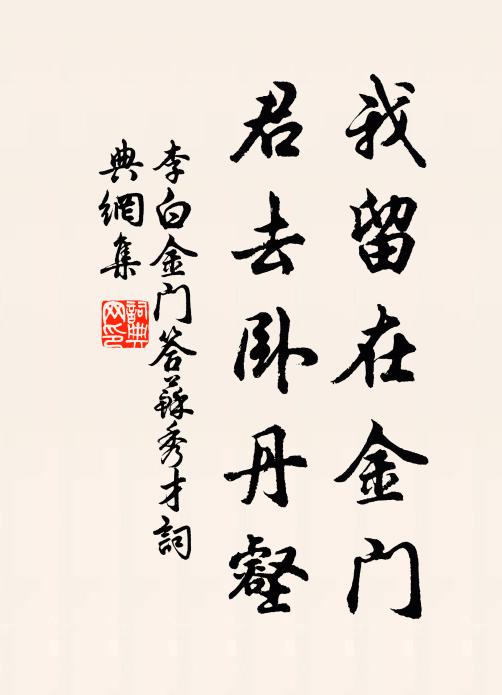 我留在金门
君去卧丹壑
李白金门答蘇秀才詞
典網集
詞典
网印